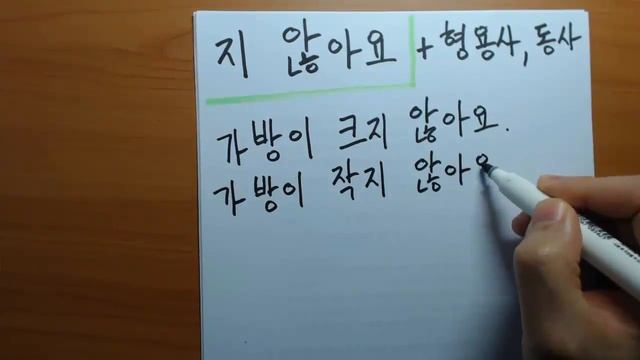 지 않아요 + 형용사, 동사
가방이 크지 않아요.
가방이 작지 않아요